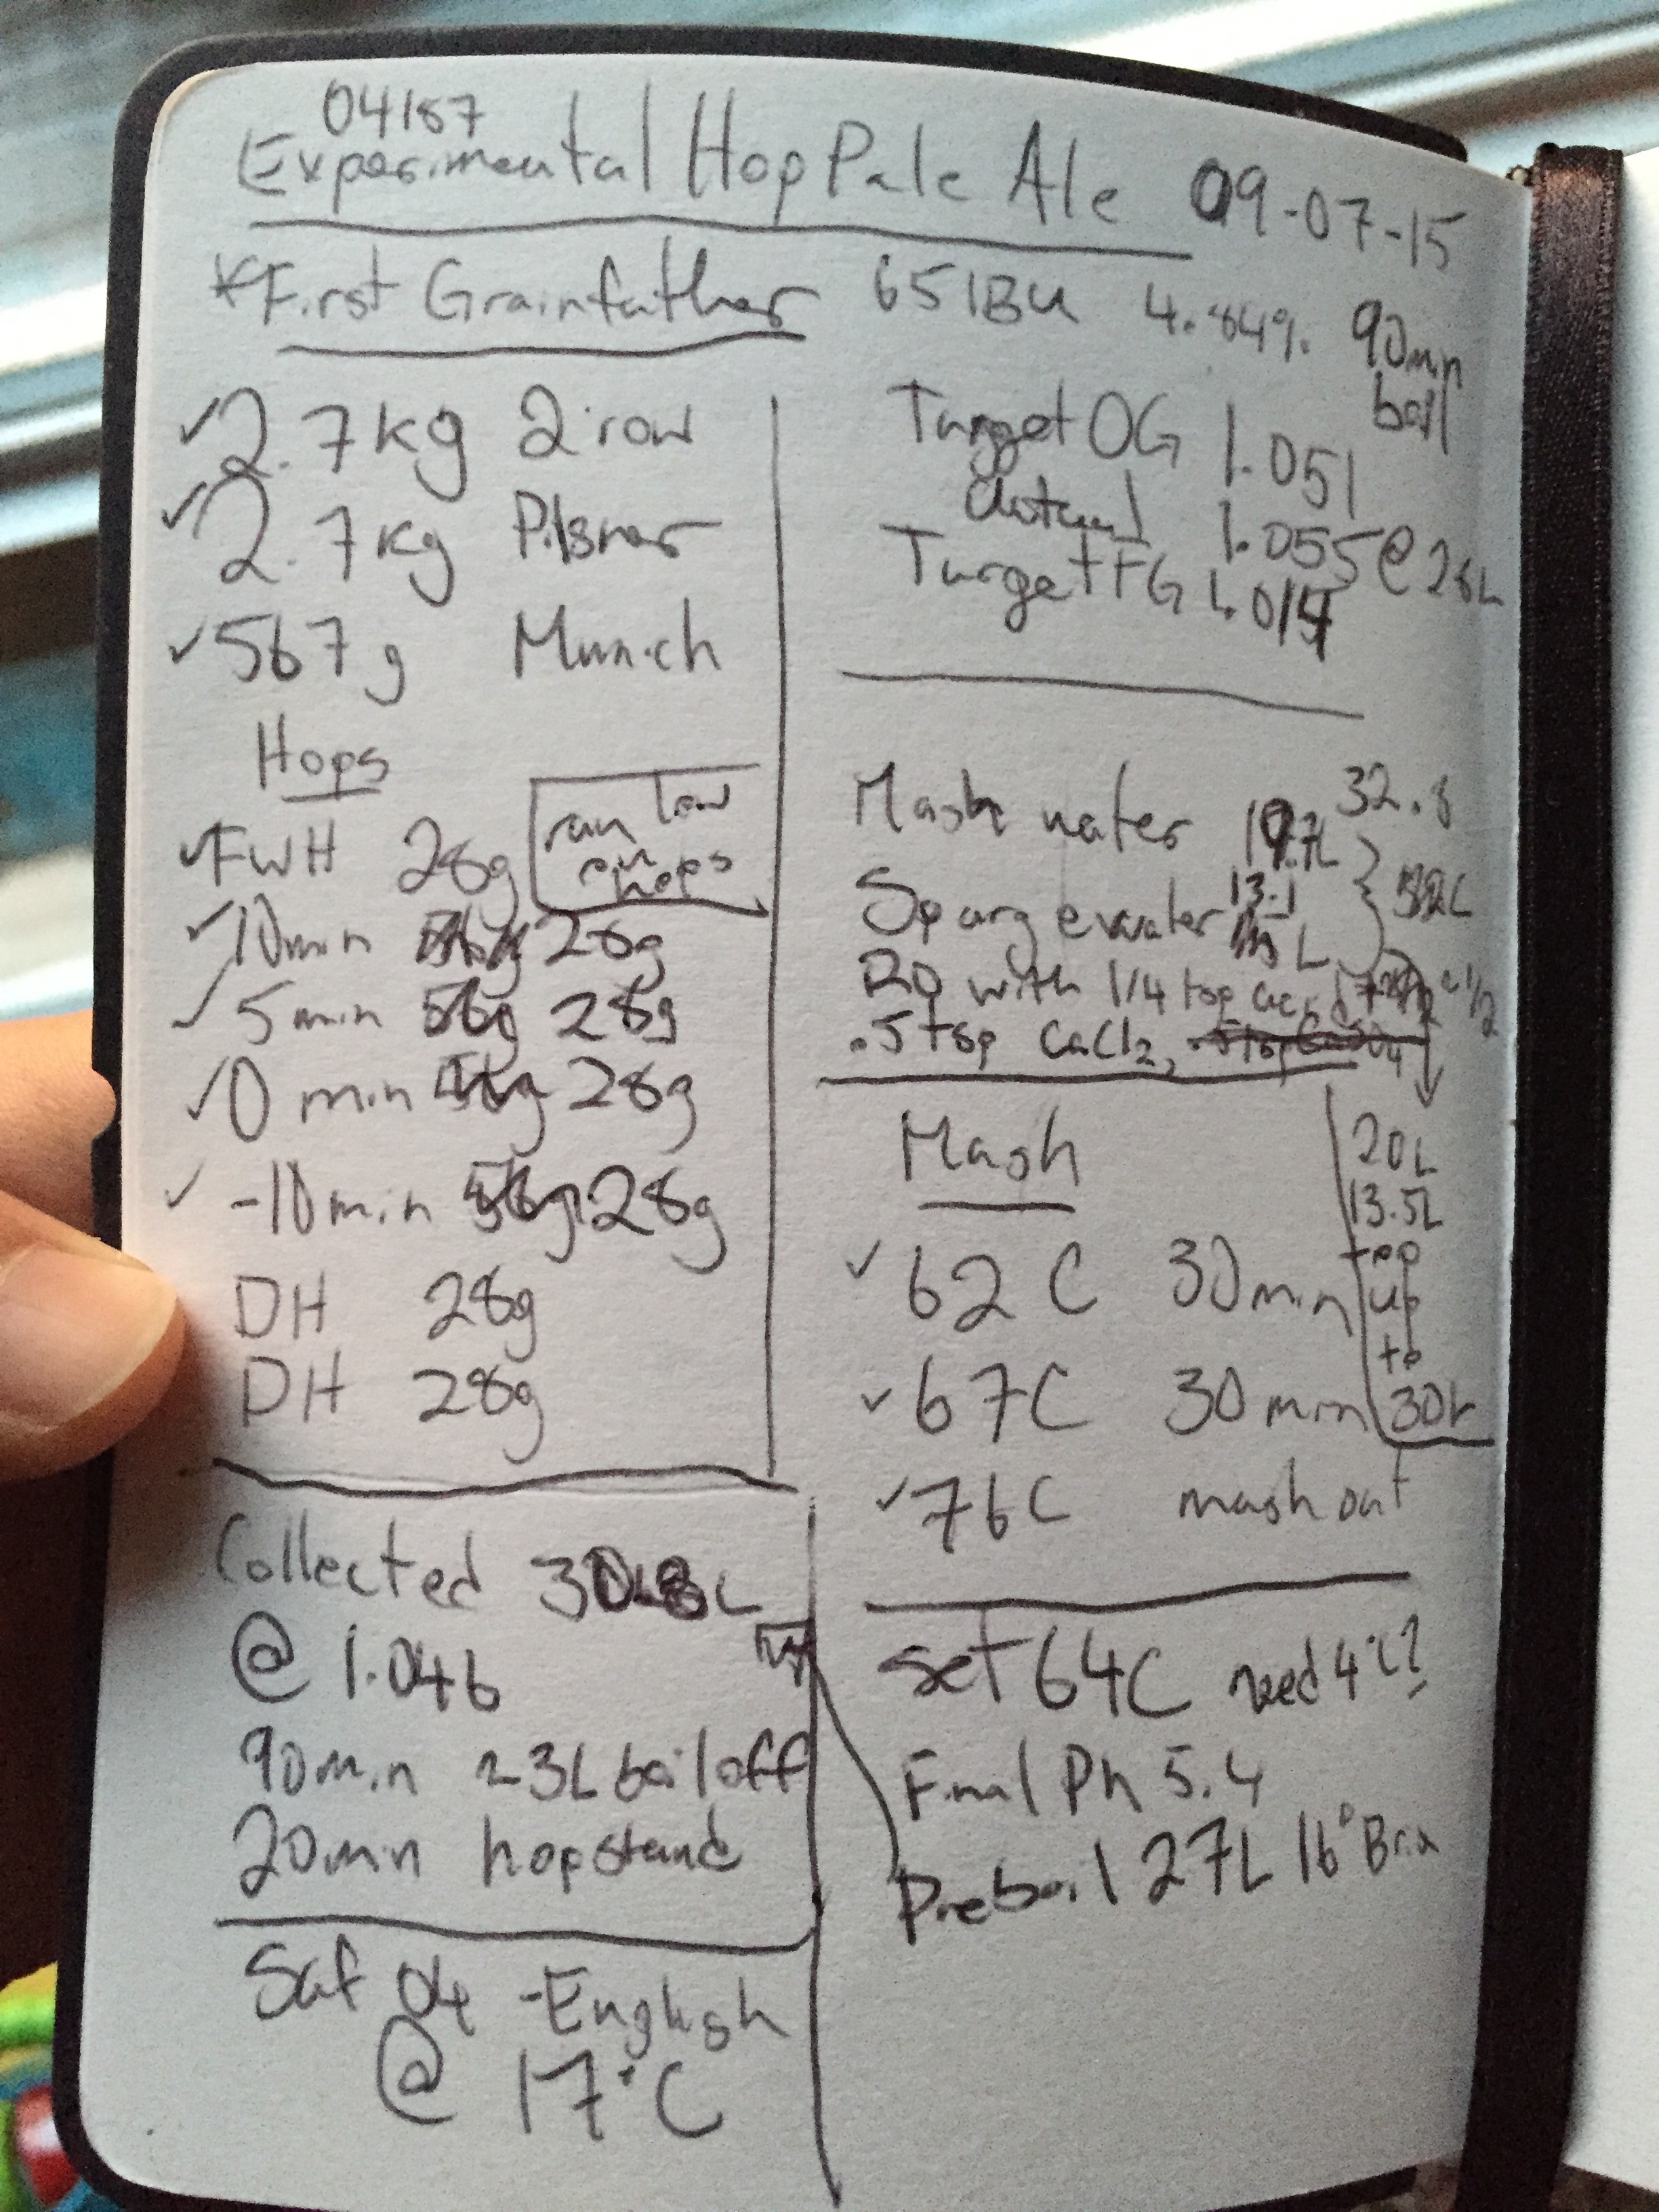 04187
Experimental Hop Pale Ale 09-07-15
*First Grainfather 65 IBU 4.84% 90min boil
✓2.7kg 2 row
✓2.7kg Pilsner
✓567g Munich
Hops
✓FWH 28g
ran low on hops
✓10min 28g
✓5min 56g 28g
✓0 min 28g
✓-10min 28g
DH 28g
DH 28g
Target OG 1.051
Actual 1.055 @ 28L
Target FG 1.014
Mash water 19.7L 32.8
Sparge water 13.1 L
RO with 1/4 tsp acid
.5 tsp CaCl2,
20L
13.5L
top
up
to
30L
Mash
✓62C 30min
✓67C 30min
✓76C mash out
Collected 30L
@ 1.046
90min ~3L boil off
20min hopstand
set 64C need 4°C?
Final Ph 5.4
Preboil 27L 16° Brix
Saf 04 -English
@ 17°C